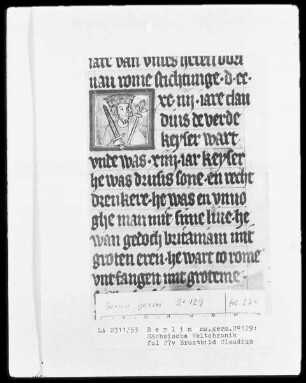 iare van unses heren bort
nan rome stichtunge · d · cc
xc · iiij · iare clau
dius de verde
keyser wart
unde was · xiiij · iar keyser
he was drusis sone · en recht
drenkere · he was en unvo
ghe man mit sime live · he
wan gedoch britaniam mit
groten eren · he wart to rome
untfangen mit groteme
Berlin germ. 2° 129
fol. 27v
LA 2311/53 Berlin ms.germ.2°129:
Sächsische Weltchronik
fol 27v Brustbild Claudius